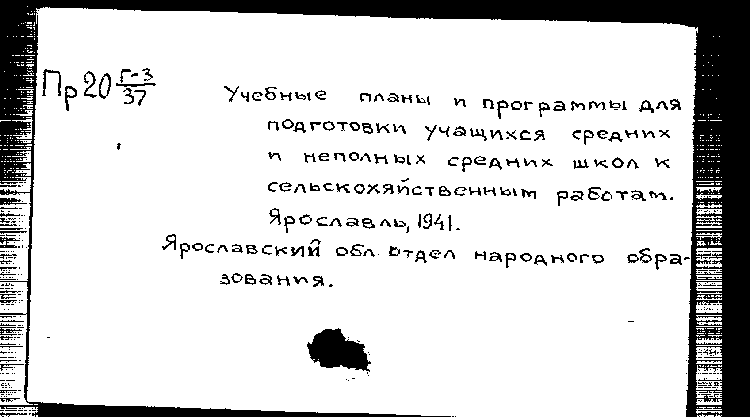 Пр 20 Г-3/37
Учебные планы и программы для
подготовки учащихся средних
и неполных средних школ к
сельскохяйственным работам.
Ярославль, 1941.
Ярославский обл. отдел народного обра-
зования.